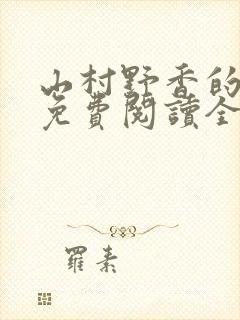 山村野香的
免費閱讀全
羅素